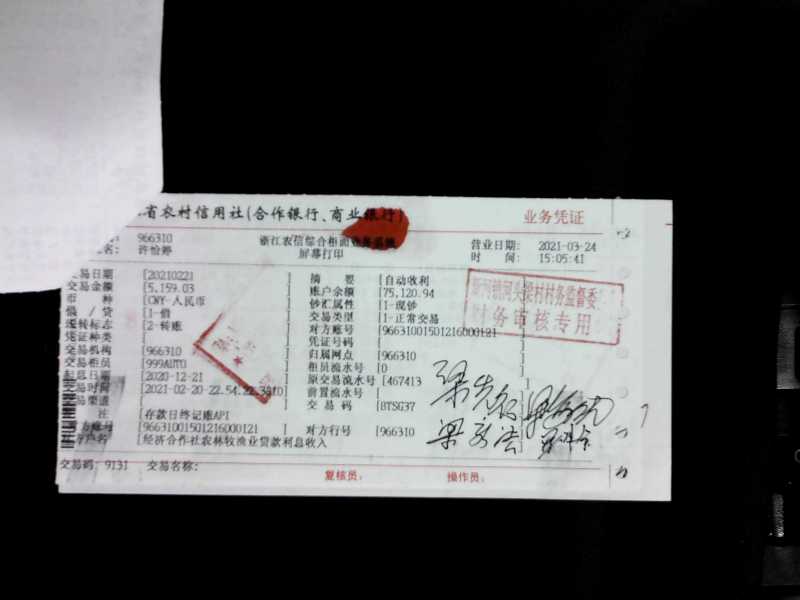 省农村信用社(合作银行、商业银行) 业务凭证
966310 浙江农信综合柜面业务系统 营业日期: 2021-03-24
许怡婷 屏幕打印 时 间: 15:05:41
交易日期 [20210221 ] 摘 要 [自动收利
交易金额 [5,159.03 ] 账户余额 [75,120.94
币 种 [CNY-人民币 ] 钞汇属性 [1-现钞
借 / 贷 [1-借 ] 交易类型 [1-正常交易
现转标志 [2-转账 ] 对方账号 [96631001501216000121 ]
凭证种类 [ ] 凭证号码 [
交易机构 [966310 ] 归属网点 [966310
交易柜员 [999AUTO ] 柜员流水号 [0
起息日期 [2020-12-21 ] 原交易流水号 [467413 ]
交易时间 [2021-02-20-22.54.22. ] 前置流水号 [
交易渠道 [ ] 交 易 码 [BTSG37
注 [存款日终记账API
对方账号 [96631001501216000121 ] 对方行号 [966310
对方户名 [经济合作社农林牧渔业贷款利息收入
交易码: 9131 交易名称:
复核员: 操作员:
头梁村村务监督委
财务审核专用